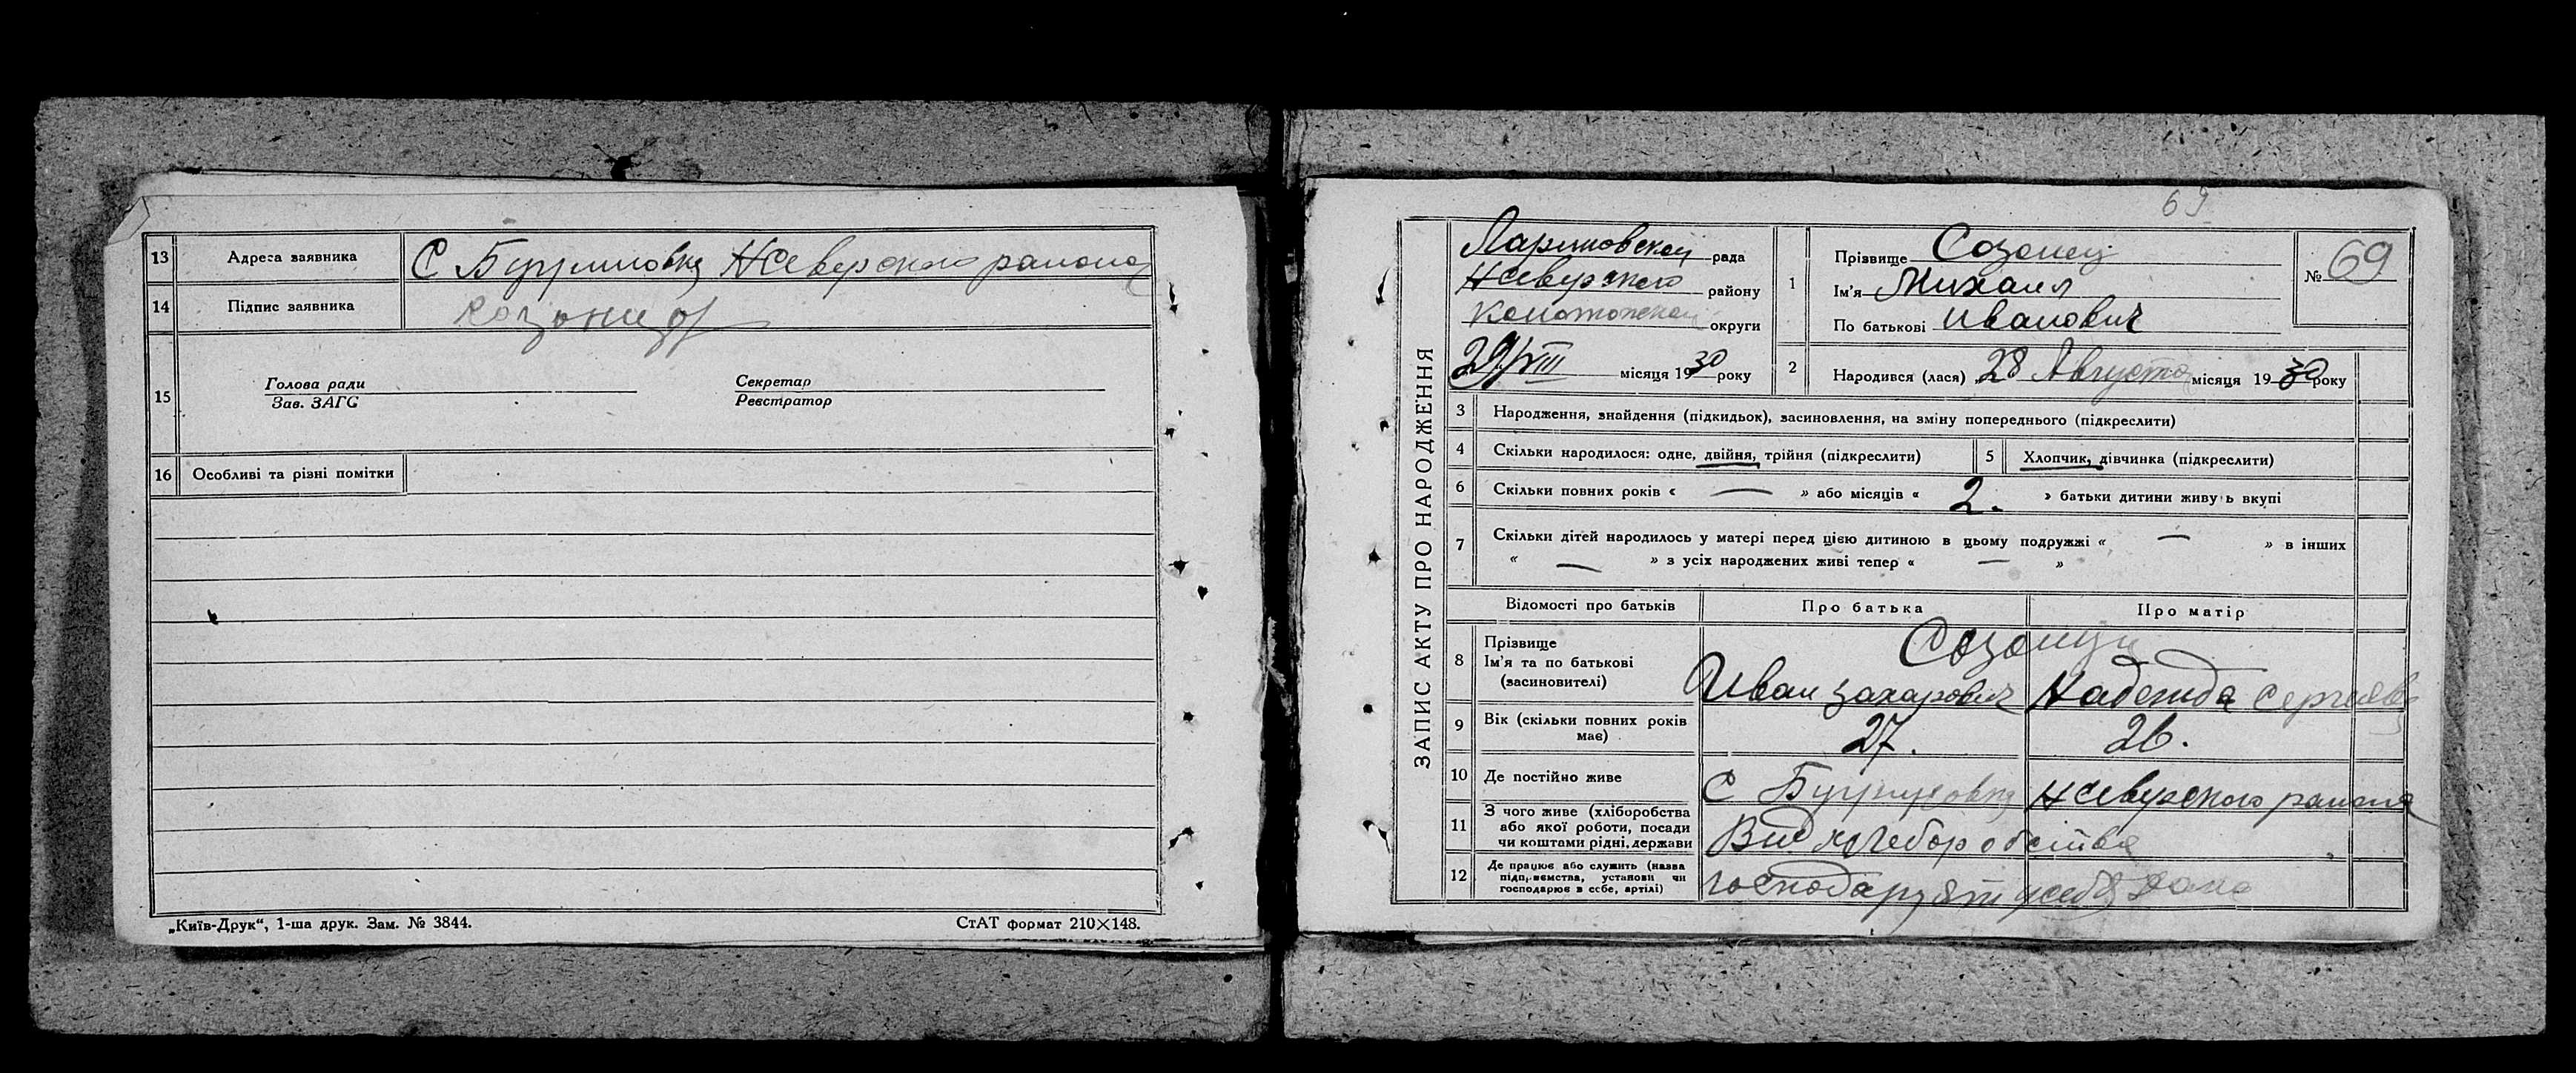 13 Адреса заявника С Бугриновка НСеверского района
14 Підпис заявника Созонец
15 Голова ради
Зав. ЗАГС
Секретар
Реєстратор
16 Особливі та різні помітки
„Київ-Друк“, 1-ша друк. Зам. № 3844.
СтАТ формат 210×148.
69
ЗАПИС АКТУ ПРО НАРОДЖЕННЯ
Лариновской рада
НСеверского району
Конотопской округи
29/VIII місяця 1930 року
1 Прізвище Созонец
Ім'я Михаил
По батькові Иванович
№ 69
2 Народився (лася) 28 Августа місяця 1930 року
3 Народження, знайдення (підкидьок), засиновлення, на зміну попереднього (підкреслити)
4 Скільки народилося: одне, двійня, трійня (підкреслити)
5 Хлопчик, дівчинка (підкреслити)
6 Скільки повних років « — » або місяців « 2. » батьки дитини живуть вкупі
7 Скільки дітей народилось у матері перед цією дитиною в цьому подружжі « — » в інших
« — » з усіх народжених живі тепер « — »
Відомості про батьків Про батька Про матір
8 Прізвище
Ім'я та по батькові
(засиновителі)
Созонец
Иван Захарович Надежда Сергеевна
9 Вік (скільки повних років
має)
27. 26.
10 Де постійно живе С НСеверского района
11 З чого живе (хліборобства
або якої роботи, посади
чи коштами рідні, держави
Вид хлеборобства
12 Де працює або служить (назва
підприємства, установи чи
господарює в себе, артілі)
господарують у себе дома